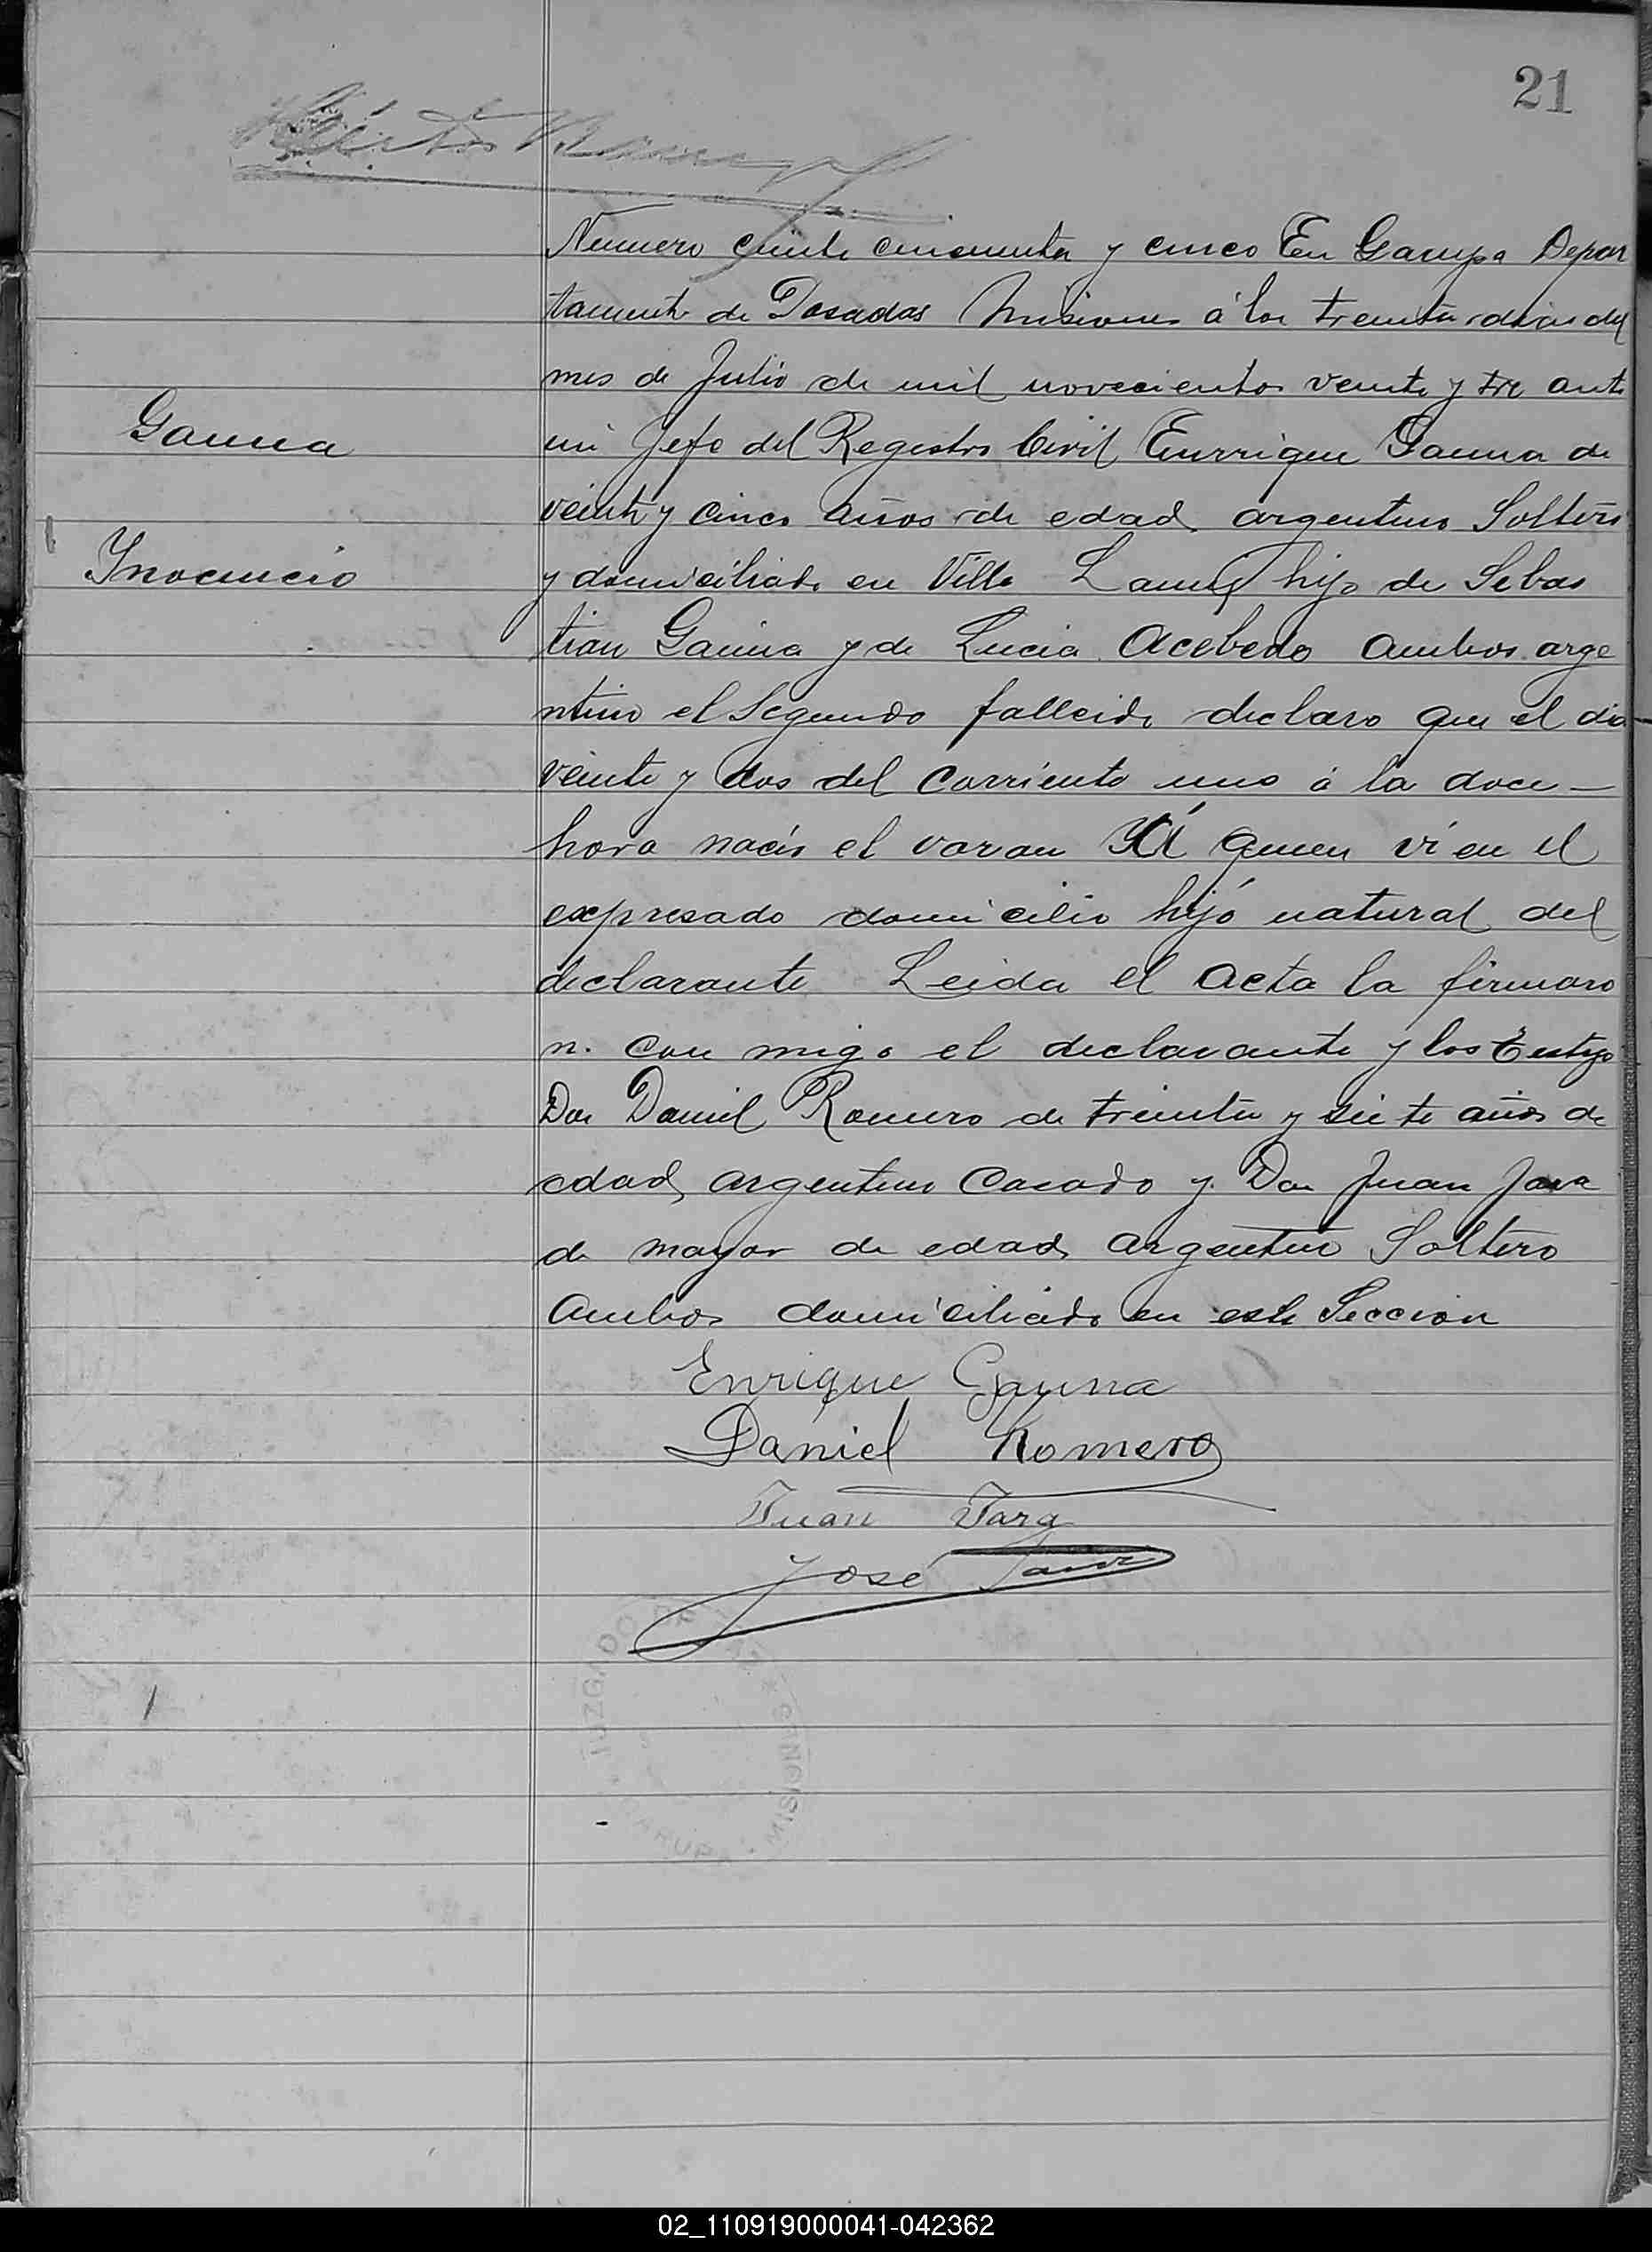 21
Numero ciento cincuenta y cinco En Garupa Depar
tamento de Posadas Misiones á los treinta dias del
mes de Julio de mil novecientos veinte y tre ante
Gauna
mi Jefe del Registro Civil Enrrique Gauna de
veinte y cinco años de edad argentino Soltero
Inocencio
y domiciliado en Villa Lanus hijo de Sebas
tian Gauna y de Lucia Acebedo Ambos arge
ntino el Segundo fallecido declaro que el dia
veinte y dos del corriente mes á la doce
hora nació el varon á quien ví en el
expresado domicilio hijó natural del
declarante Leida el acta la firmaro
n. con migo el declarante y los testigo
Don Daniel Romero de treinta y siete años de
edad argentino Casado y Don Juan Jara
de mayor de edad argentino Soltero
Ambos domiciliado en este Seccion
Enrique Gauna
Daniel Romero
Juan Jara
José
JUZGADO DE PAZ
MISIONES
GARUPA
02_110919000041-042362